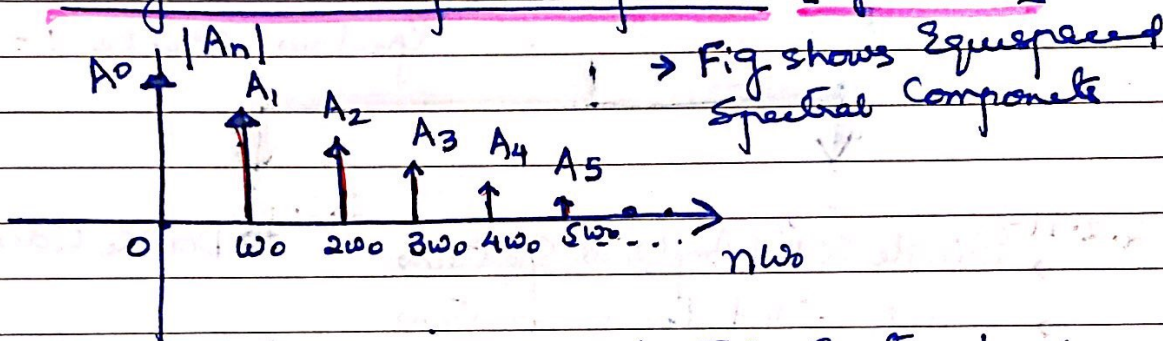 |An|
A0
A1
A2
A3
A4
A5
→ Fig shows Equispaced
Spectral Componets
0 ω0 2ω0 3ω0 4ω0 5ω0....
nω0